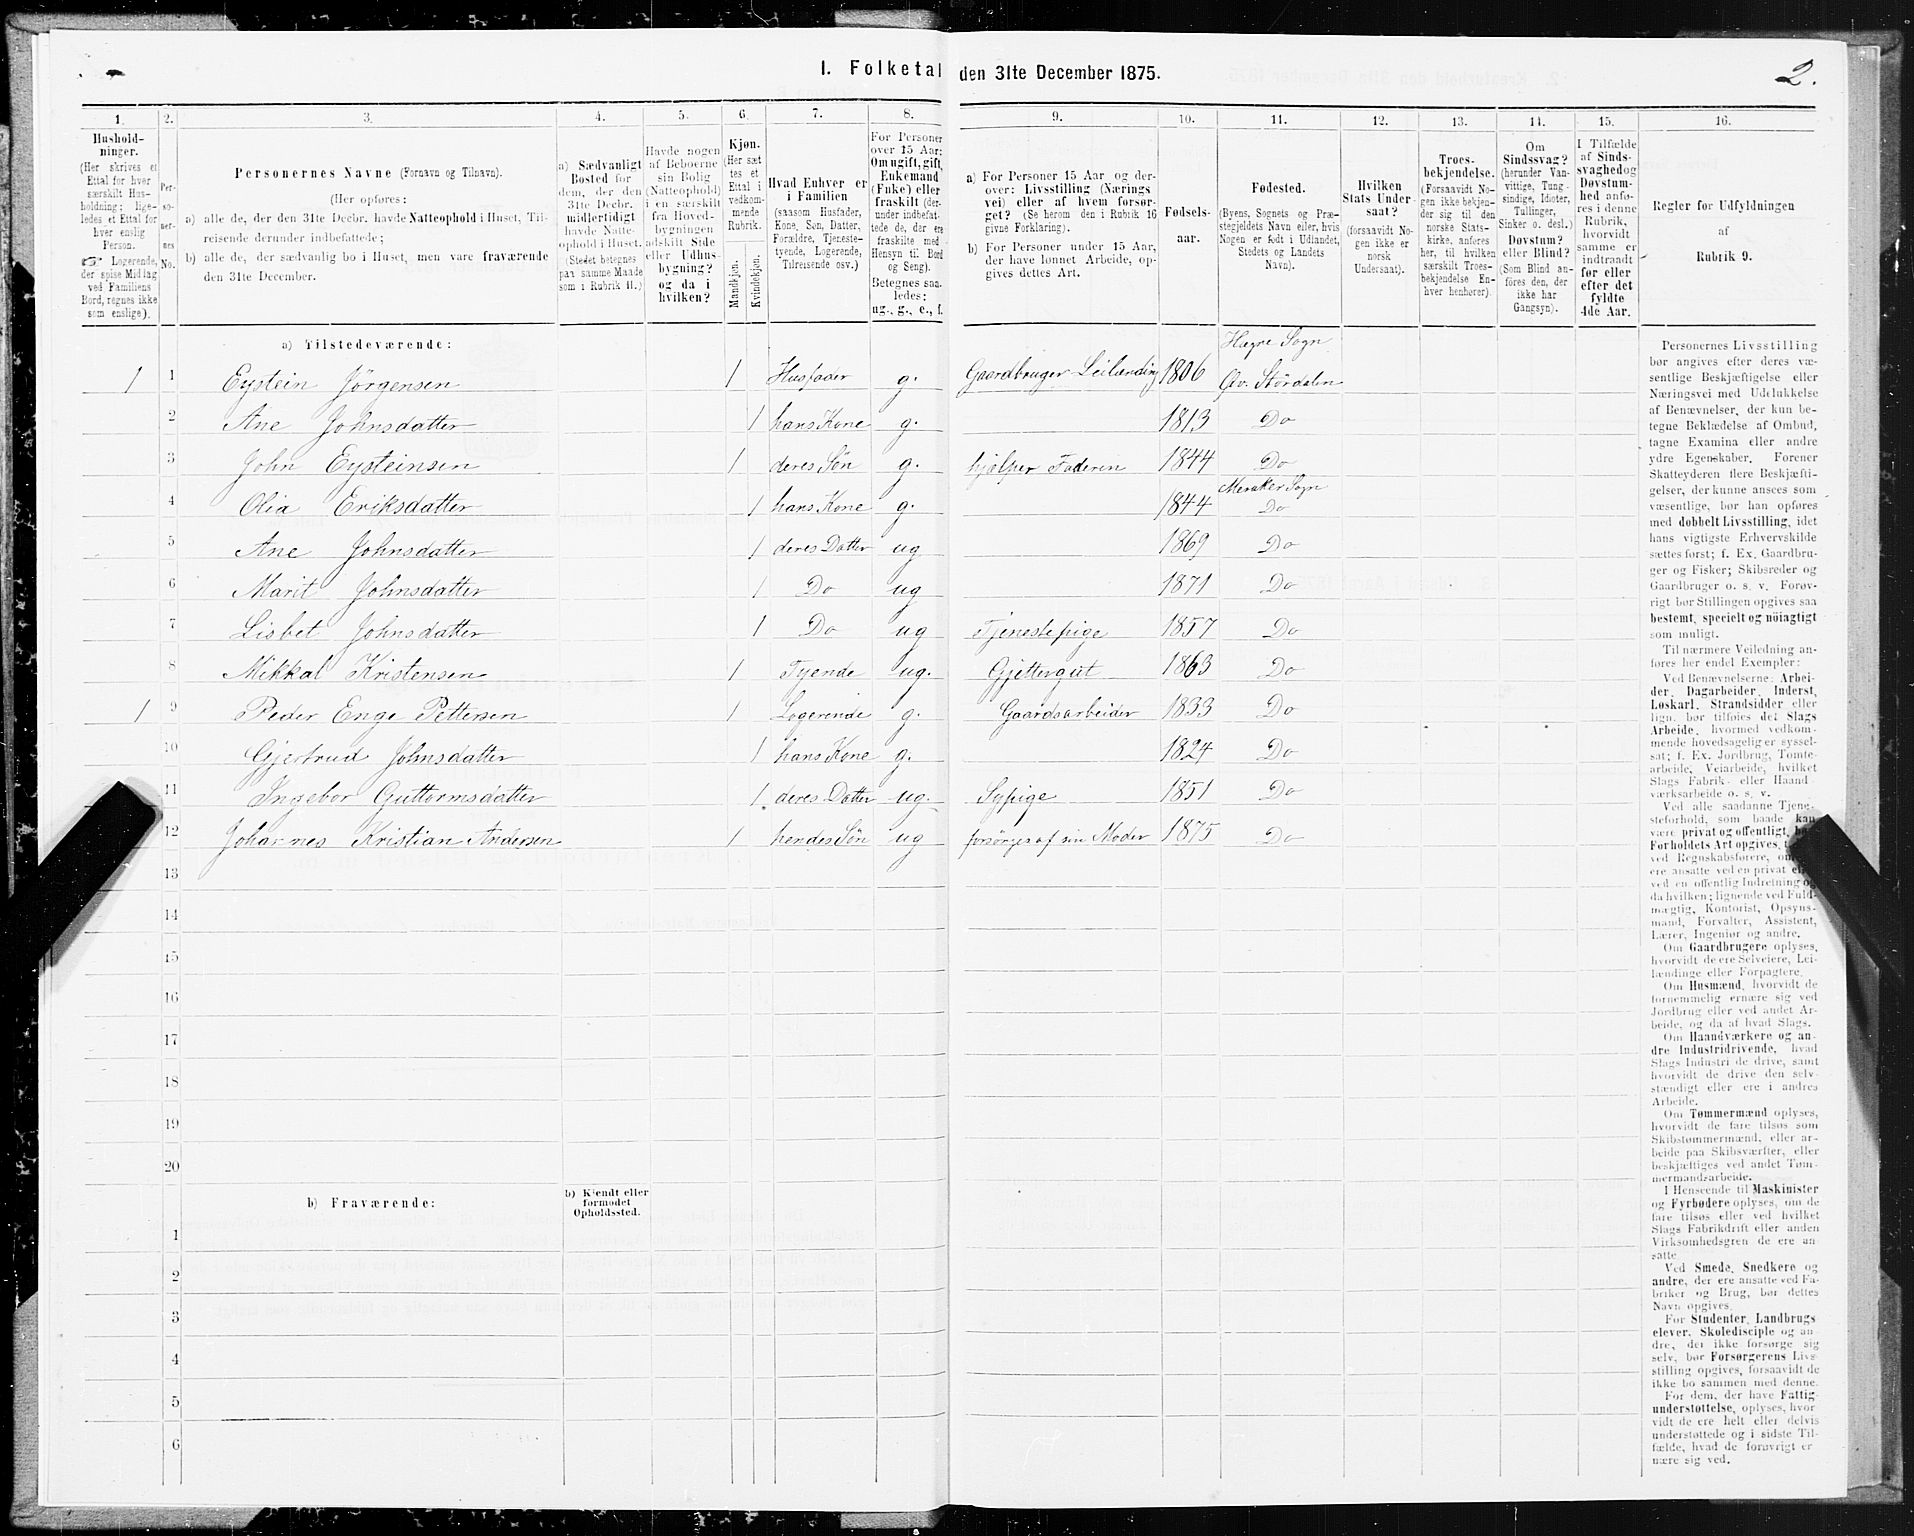 I. Folketal den 31te December 1875.
2.
1. 2. 3. 4. 5. 6. 7. 8. 9. 10. 11. 12. 13. 14. 15. 16.
Hushold-
ninger.
(Her skrives et
Ettal for hver
særskilt Hus-
holdning; lige-
ledes et Ettal for
hver enslig
Person.
☞ Logerende,
der spise Middag
ved Familiens
Bord, regnes ikke
som enslige).
Per-
so-
ner-
nes
No.
Personernes Navne (Fornavn og Tilnavn).
(Her opføres:
a) alle de, der den 31te Decbr. havde Natteophold i Huset, Til-
reisende derunder indbefattede;
b) alle de, der sædvanlig bo i Huset, men vare fraværende
den 31te December.
a) Sædvanligt
Bosted for
dem, der den
31te Decbr.
midlertidigt
havde Natte-
ophold i Huset.
(Stedet betegnes
paa samme Maade
som i Rubrik 11.)
Havde nogen
af Beboerne
sin Bolig
(Natteophold)
i en særskilt
fra Hoved-
bygningen
adskilt Side
eller Udhus-
bygning?
og da i
hvilken?
Kjøn.
(Her sæt-
tes et
Ettal i
vedkom-
mende
Rubrik.
Mandkjøn.
Kvindekjøn.
Hvad Enhver er
i Familien
(saasom Husfader,
Kone, Søn, Datter,
Forældre, Tjeneste-
tyende, Logerende,
Tilreisende osv.)
For Personer
over 15 Aar:
Om ugift, gift,
Enkemand
(Enke) eller
fraskilt (der-
under indbefat-
tede de, der ere
fraskilte med
Hensyn til Bord
og Seng).
Betegnes saa-
ledes:
ug., g., e., f.
a) For Personer 15 Aar og der-
over: Livsstilling (Nærings
vei) eller af hvem forsør-
get? (Se herom den i Rubrik 16
givne Forklaring).
b) For Personer under 15 Aar,
der have lønnet Arbeide, op-
gives dettes Art.
Fødsels-
aar.
Fødested.
(Byens, Sognets og Præ-
stegjeldets Navn eller, hvis
Nogen er født i Udlandet,
Stedets og Landets
Navn).
Hvilken
Stats Under
saat?
(forsaavidt No-
gen ikke er
norsk
Undersaat).
Troes-
bekjendelse.
(Forsaavidt No-
gen ikke bekjen-
der sig til den
norske Stats-
kirke, anføres
her, til hvilken
særskilt Troes-
bekjendelse En-
hver henhører).
Om
Sindssvag?
(herunder Van-
vittige, Tung-
sindige, Idioter,
Tullinger,
Sinker o. desl.)
Døvstum?
eller Blind?
(Som Blind an-
føres den, der
ikke har
Gangsyn).
I Tilfælde
af Sinds-
svaghed og
Døvstum-
hed anfø-
res i denne
Rubrik,
hvorvidt
samme er
indtraadt
før eller
efter det
fyldte
4de Aar.
Regler for Udfyldningen
af
Rubrik 9.
a) Tilstedeværende:
Hegre Sogn
1 1 Eystein Jörgensen 1 Husfader g. Gaardbruger Leilænding 1806 Öv. Stördalen
2 Ane Johnsdatter 1 hans Kone g. 1813 Do
3 John Eysteinsen 1 deres Sön g. hjælper Faderen 1844 Do
Meraker Sogn
4 Olia Eriksdatter 1 hans Kone g. 1844 Do
5 Ane Johnsdatter 1 deres Datter ug 1869 Do
6 Marit Johnsdatter 1 Do ug 1871 Do
7 Lisbet Johnsdatter 1 Do ug Tjenestepige 1857 Do
8 Mikkal Kristensen 1 Tyende ug. Gjettergut 1863 Do
1 9 Peder Enge Pettersen 1 Logerende g. Gaardsarbeider 1833 Do
10 Gjertrud Johnsdatter 1 hans Kone g. 1824 Do
11 Ingebor Guttormsdatter 1 deres Datter ug. Sypige 1851 Do
12 Johannes Kristian Andersen 1 hendes Sön ug forsörges af sin Moder 1875 Do
13
14
15
16
17
18
19
20
b) Fraværende:
b) Kjendt eller
formodet
Opholdssted.
1
2
3
4
5
6
Personernes Livsstilling
bør angives efter deres væ-
sentlige Beskjæftigelse eller
Næringsvei med Udelukkelse
af Benævnelser, der kun be-
tegne Beklædelse af Ombud,
tagne Examina eller andre
ydre Egenskaber. Forener
Skatteyderen flere Beskjæfti-
gelser, der kunne ansees som
væsentlige, bør han opføres
med dobbelt Livsstilling, idet
hans vigtigste Erhvervskilde
sættes først; f. Ex. Gaardbru-
ger og Fisker; Skibsreder og
Gaardbruger o. s. v. Forøv-
rigt bør Stillingen opgives saa
bestemt, specielt og nöiagtigt
som muligt.
Til nærmere Veiledning an-
føres her endel Exempler:
Ved Benævnelserne: Arbei-
der, Dagarbeider, Inderst,
Løskarl, Strandsidder eller
lign. bør tilføies det Slags
Arbeide, hvormed vedkom-
mende hovedsagelig er syssel-
sat; f. Ex. Jordbrug, Tomte-
arbeide, Veiarbeide, hvilket
Slags Fabrik- eller Haand-
værksarbeide o. s. v.
Ved alle saadanne Tjene-
steforhold, som baade kan
være privat og offentligt,
Forholdets Art opgives,
ved Regnskabsførere,
ere ansatte ved en privat
ved en offentlig Indretning og
da hvilken; lignende ved Fuld-
mægtig, Kontorist, Opsyns-
mand, Forvalter, Assistent,
Lærer, Ingeniør og andre.
Om Gaardbrugere oplyses,
hvorvidt de ere Selveiere, Lei-
lændinge eller Forpagtere.
Om Husmænd, hvorvidt de
fornemmelig ernære sig ved
Jordbrug eller ved andet Ar-
beide, og da af hvad Slags.
Om Haandværkere og an-
dre Industridrivende, hvad
Slags Industri de drive, samt
hvorvidt de drive den selv-
stændigt eller ere i andres
Arbeide.
Om Tømmermænd oplyses,
hvorvidt de fare tilsøs som
Skibstømmermænd, eller ar-
beide paa Skibsværfter, eller
beskjæftiges ved andet Tøm-
mermandsarbeide.
I Henseende til Maskinister
og Fyrbødere oplyses, om de
fare tilsøs eller ved hvilket
Slags Fabrikdrift eller anden
Virksomhedsgren de ere an-
satte.
Ved Smede, Snedkere og
andre, der ere ansatte ved Fa-
briker og Brug, bør dettes
Navn opgives.
For Studenter, Landbrugs
elever, Skoledisciple og an-
dre, der ikke forsørge sig
selv, bør Forsørgerens Livs-
stilling opgives, forsaavidt de
ikke bo sammen med denne.
For dem, der have Fattig-
understøttelse, oplyses, hvor-
vidt de ere helt eller delvis
understøttede og i sidste Til-
fælde, hvad de forøvrigt er-
nære sig ved.